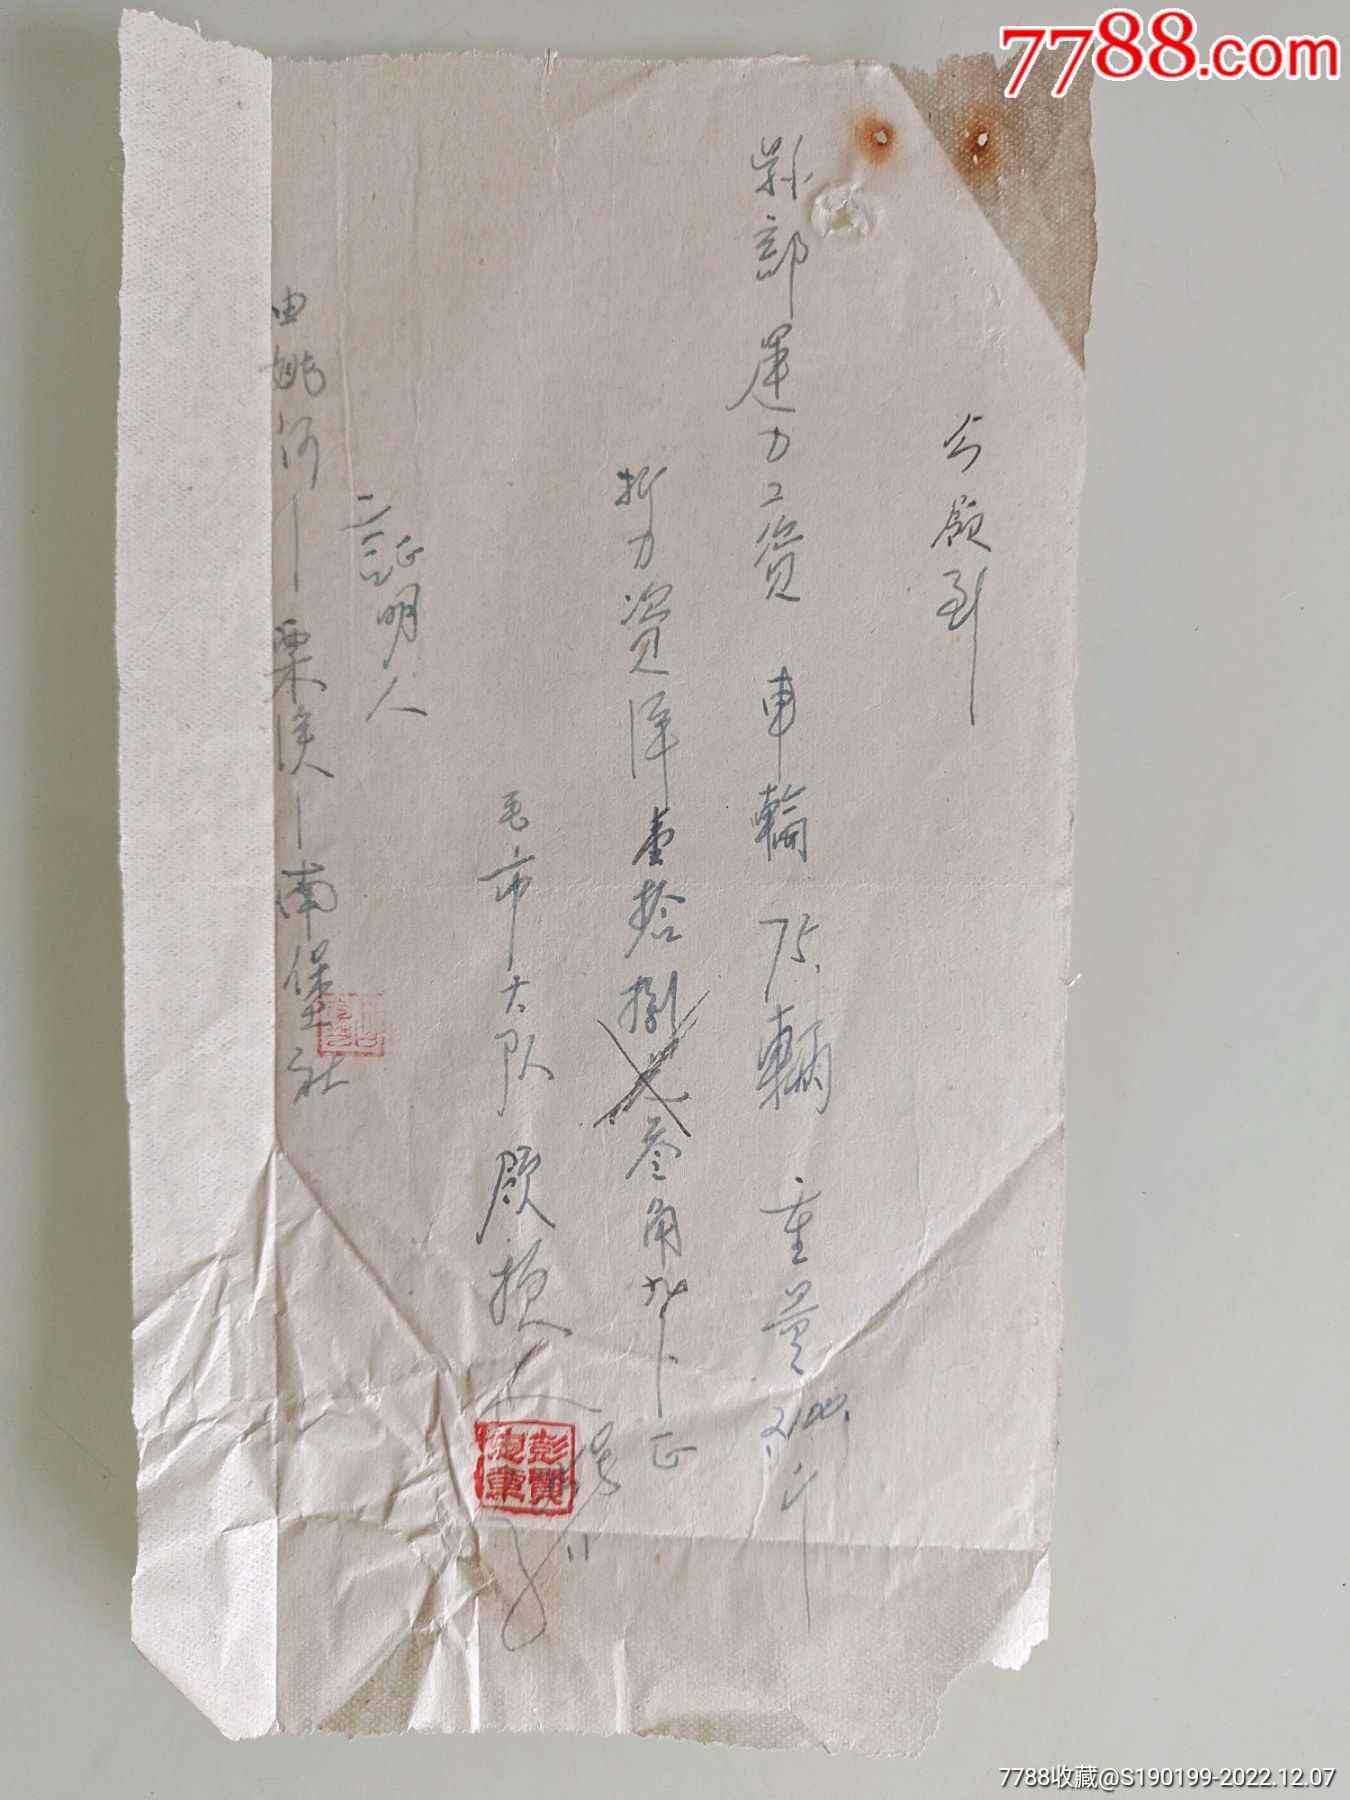 7788.com
今领到
县部運力工資 車輪 75 輛 重量 2100 斤
折力資洋壹拾捌元叁角九卜正
毛市大队 領损人
彭賢
忠章
証明人
由姚河—栗溪—南堡社
7788收藏@S190199-2022.12.07